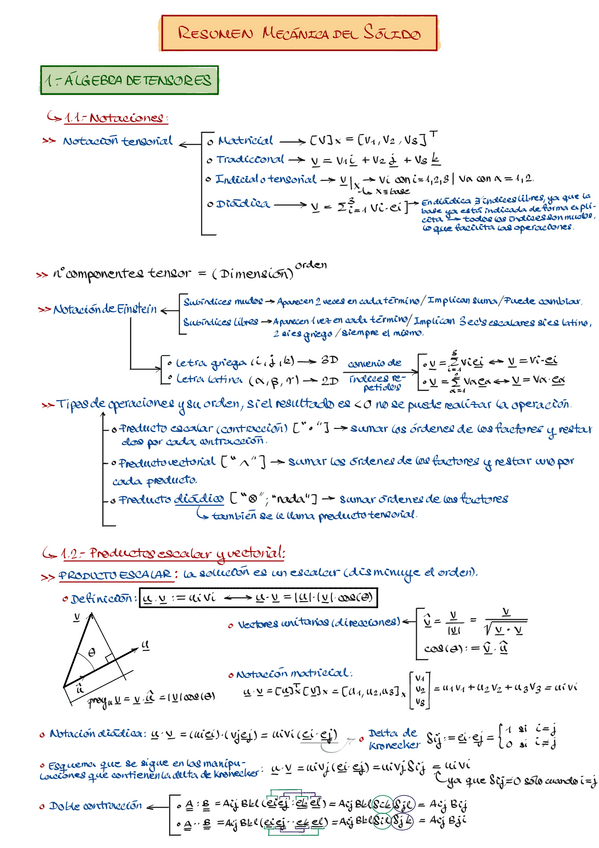 RESUMEN MECÁNICA DEL SÓLIDO
1.- ÁLGEBRA DE TENSORES
↳ 1.1- Notaciones:
>> Notación tensorial
∘ Matricial → [V]x = [V1, V2, V3]ᵀ
∘ Tradicional → v = V1 i + V2 j + V3 k
∘ Indicial o tensorial → v|x → Vi con i=1,2,3 | Vα con α=1,2.
↳ x≡base
∘ Diádica → v = Σ³i=1 Vi·ei] → En diádica ∄ índices libres, ya que la
base ya está indicada de forma explí-
cita → todos los índices son mudos,
lo que facilita las operaciones.
>> nº componentes tensor = (Dimensión)^orden
>> Notación de Einstein
Subíndices mudos → Aparecen 2 veces en cada término / Implican suma / Puede cambiar.
Subíndices libres → Aparecen 1 vez en cada término / Implican 3 ec's escalares si es latino,
2 si es griego / siempre el mismo.
∘ Letra griega (i, j, k) → 3D
∘ Letra latina (α, β, γ) → 2D
convenio de
índices re-
petidos
∘ v = Σ³i=1 Vi ei ↔ v = Vi·ei
∘ v = Σ²α=1 Vα eα ↔ v = Vα·eα
>> Tipos de operaciones y su orden, si el resultado es <0 no se puede realizar la operación.
∘ Producto escalar (contracción) ["·"] → sumar los órdenes de los factores y restar
dos por cada contracción.
∘ Producto vectorial ["∧"] → sumar los órdenes de los factores y restar uno por
cada producto.
∘ Producto diádico ["⊗"; "nada"] → sumar órdenes de los factores
↳ también se le llama producto tensorial.
↳ 1.2- Productos escalar y vectorial:
>> PRODUCTO ESCALAR: la solución es un escalar (disminuye el orden).
∘ Definición: u·v := ui vi ↔ u·v = |u|·|v|·cos(θ)
v
θ
u
û
proyu v = v·û = |v|cos(θ)
∘ Vectores unitarios (direcciones)
v̂ = v/|v| = v/√(v·v)
cos(θ) := v̂·û
∘ Notación matricial:
u·v = [u]ᵀx [v]x = [u1, u2, u3]x [v1 v2 v3] = u1v1 + u2v2 + u3v3 = ui vi
∘ Notación diádica: u·v = (ui ei)·(vj ej) = ui vi (ei·ej)
∘ Delta de
kronecker
δij := ei·ej = { 1 si i=j
0 si i≠j
∘ Esquema que se sigue en las manipu-
laciones que contienen la delta de kronecker: u·v = ui vj (ei·ej) = ui vj δij = ui vi
↳ ya que δij≠0 sólo cuando i=j
∘ Doble contracción
∘ A : B = Aij Bkl (ei ej : ek el) = Aij Bkl (δik δjl) = Aij Bij
∘ A ·· B = Aij Bkl (ei ej ·· ek el) = Aij Bkl (δil δjk) = Aij Bji